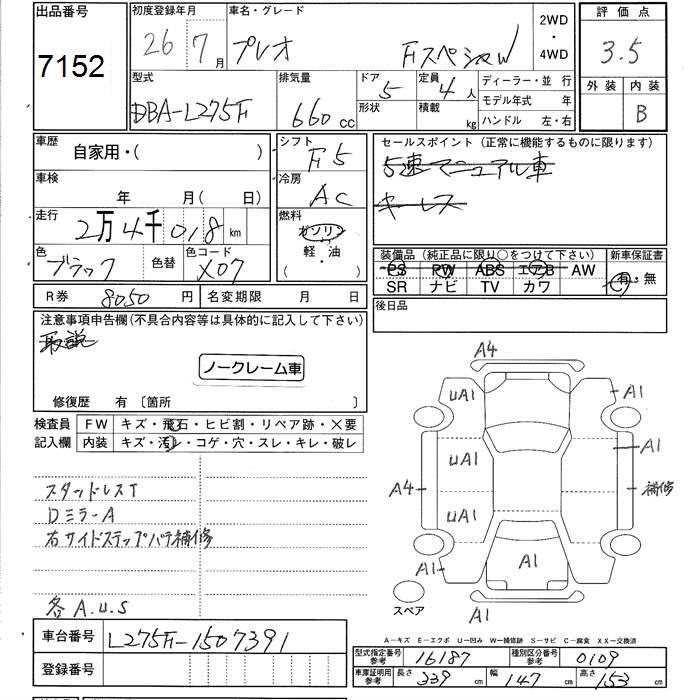 出品番号
7152
初度登録年月
26 7月
車名・グレード
プレオ Fスペシャル
2WD
・
4WD
評価点
3.5
外装 内装
B
型式
DBA-L275F
排気量
660cc
ドア
5
形状
定員
4人
積載
kg
ディーラー・並行
モデル年式 年
ハンドル 左・右
車歴
自家用・( )
シフト
F5
セールスポイント(正常に機能するものに限ります)
5速マニュアル車
キーレス
車検
年 月( 日)
冷房
AC
走行
2万4千018km
燃料
ガソリン
軽・油
( )
色
ブラック
色替
色コード
X07
装備品(純正品に限り○をつけて下さい)
PS PW ABS エアB AW
SR ナビ TV カワ
新車保証書
有・無
R券 8050円
名変期限 月 日
後日品
注意事項申告欄(不具合内容等は具体的に記入して下さい)
取説
ノークレーム車
修復歴 有 〔箇所 〕
検査員
記入欄
FW キズ・飛石・ヒビ割・リペア跡・×要
内装 キズ・汚レ・コゲ・穴・スレ・キレ・破レ
スタッドレスT
DミラーA
右サイドステップパテ補修
各A.U.S
A4
UA1
A1
UA1
A1
A4
補修
UA1
A1
A1
A1
スペア
A-キズ E-エクボ U-凹み W-補修跡 S-サビ C-腐食 XX-交換済
車台番号
L275F-1507391
登録番号
型式指定番号
参考
16187
種別区分番号
参考
0109
車庫証明用
参考
長さ 339cm
幅 147cm
高さ 153cm